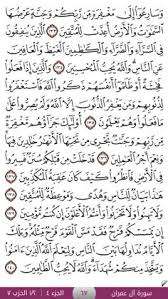 وَسَارِعُوٓا۟ إِلَىٰ مَغْفِرَةٍ مِّن رَّبِّكُمْ وَجَنَّةٍ عَرْضُهَا
ٱلسَّمَٰوَٰتُ وَٱلْأَرْضُ أُعِدَّتْ لِلْمُتَّقِينَ ١٣٣ ٱلَّذِينَ يُنفِقُونَ
فِى ٱلسَّرَّآءِ وَٱلضَّرَّآءِ وَٱلْكَٰظِمِينَ ٱلْغَيْظَ وَٱلْعَافِينَ
عَنِ ٱلنَّاسِ وَٱللَّهُ يُحِبُّ ٱلْمُحْسِنِينَ ١٣٤ وَٱلَّذِينَ إِذَا فَعَلُوا۟
فَٰحِشَةً أَوْ ظَلَمُوٓا۟ أَنفُسَهُمْ ذَكَرُوا۟ ٱللَّهَ فَٱسْتَغْفَرُوا۟
لِذُنُوبِهِمْ وَمَن يَغْفِرُ ٱلذُّنُوبَ إِلَّا ٱللَّهُ وَلَمْ يُصِرُّوا۟ عَلَىٰ مَا
فَعَلُوا۟ وَهُمْ يَعْلَمُونَ ١٣٥ أُو۟لَٰٓئِكَ جَزَآؤُهُم مَّغْفِرَةٌ
مِّن رَّبِّهِمْ وَجَنَّٰتٌ تَجْرِى مِن تَحْتِهَا ٱلْأَنْهَٰرُ خَٰلِدِينَ فِيهَا
وَنِعْمَ أَجْرُ ٱلْعَٰمِلِينَ ١٣٦ قَدْ خَلَتْ مِن قَبْلِكُمْ سُنَنٌ فَسِيرُوا۟
فِى ٱلْأَرْضِ فَٱنظُرُوا۟ كَيْفَ كَانَ عَٰقِبَةُ ٱلْمُكَذِّبِينَ ١٣٧
هَٰذَا بَيَانٌ لِّلنَّاسِ وَهُدًى وَمَوْعِظَةٌ لِّلْمُتَّقِينَ ١٣٨ وَلَا
تَهِنُوا۟ وَلَا تَحْزَنُوا۟ وَأَنتُمُ ٱلْأَعْلَوْنَ إِن كُنتُم مُّؤْمِنِينَ ١٣٩
إِن يَمْسَسْكُمْ قَرْحٌ فَقَدْ مَسَّ ٱلْقَوْمَ قَرْحٌ مِّثْلُهُۥ وَتِلْكَ
ٱلْأَيَّامُ نُدَاوِلُهَا بَيْنَ ٱلنَّاسِ وَلِيَعْلَمَ ٱللَّهُ ٱلَّذِينَ ءَامَنُوا۟
وَيَتَّخِذَ مِنكُمْ شُهَدَآءَ وَٱللَّهُ لَا يُحِبُّ ٱلظَّٰلِمِينَ ١٤٠
سورة آل عمران ٦٧ الجزء ٤ ١/٢ الحزب ٧